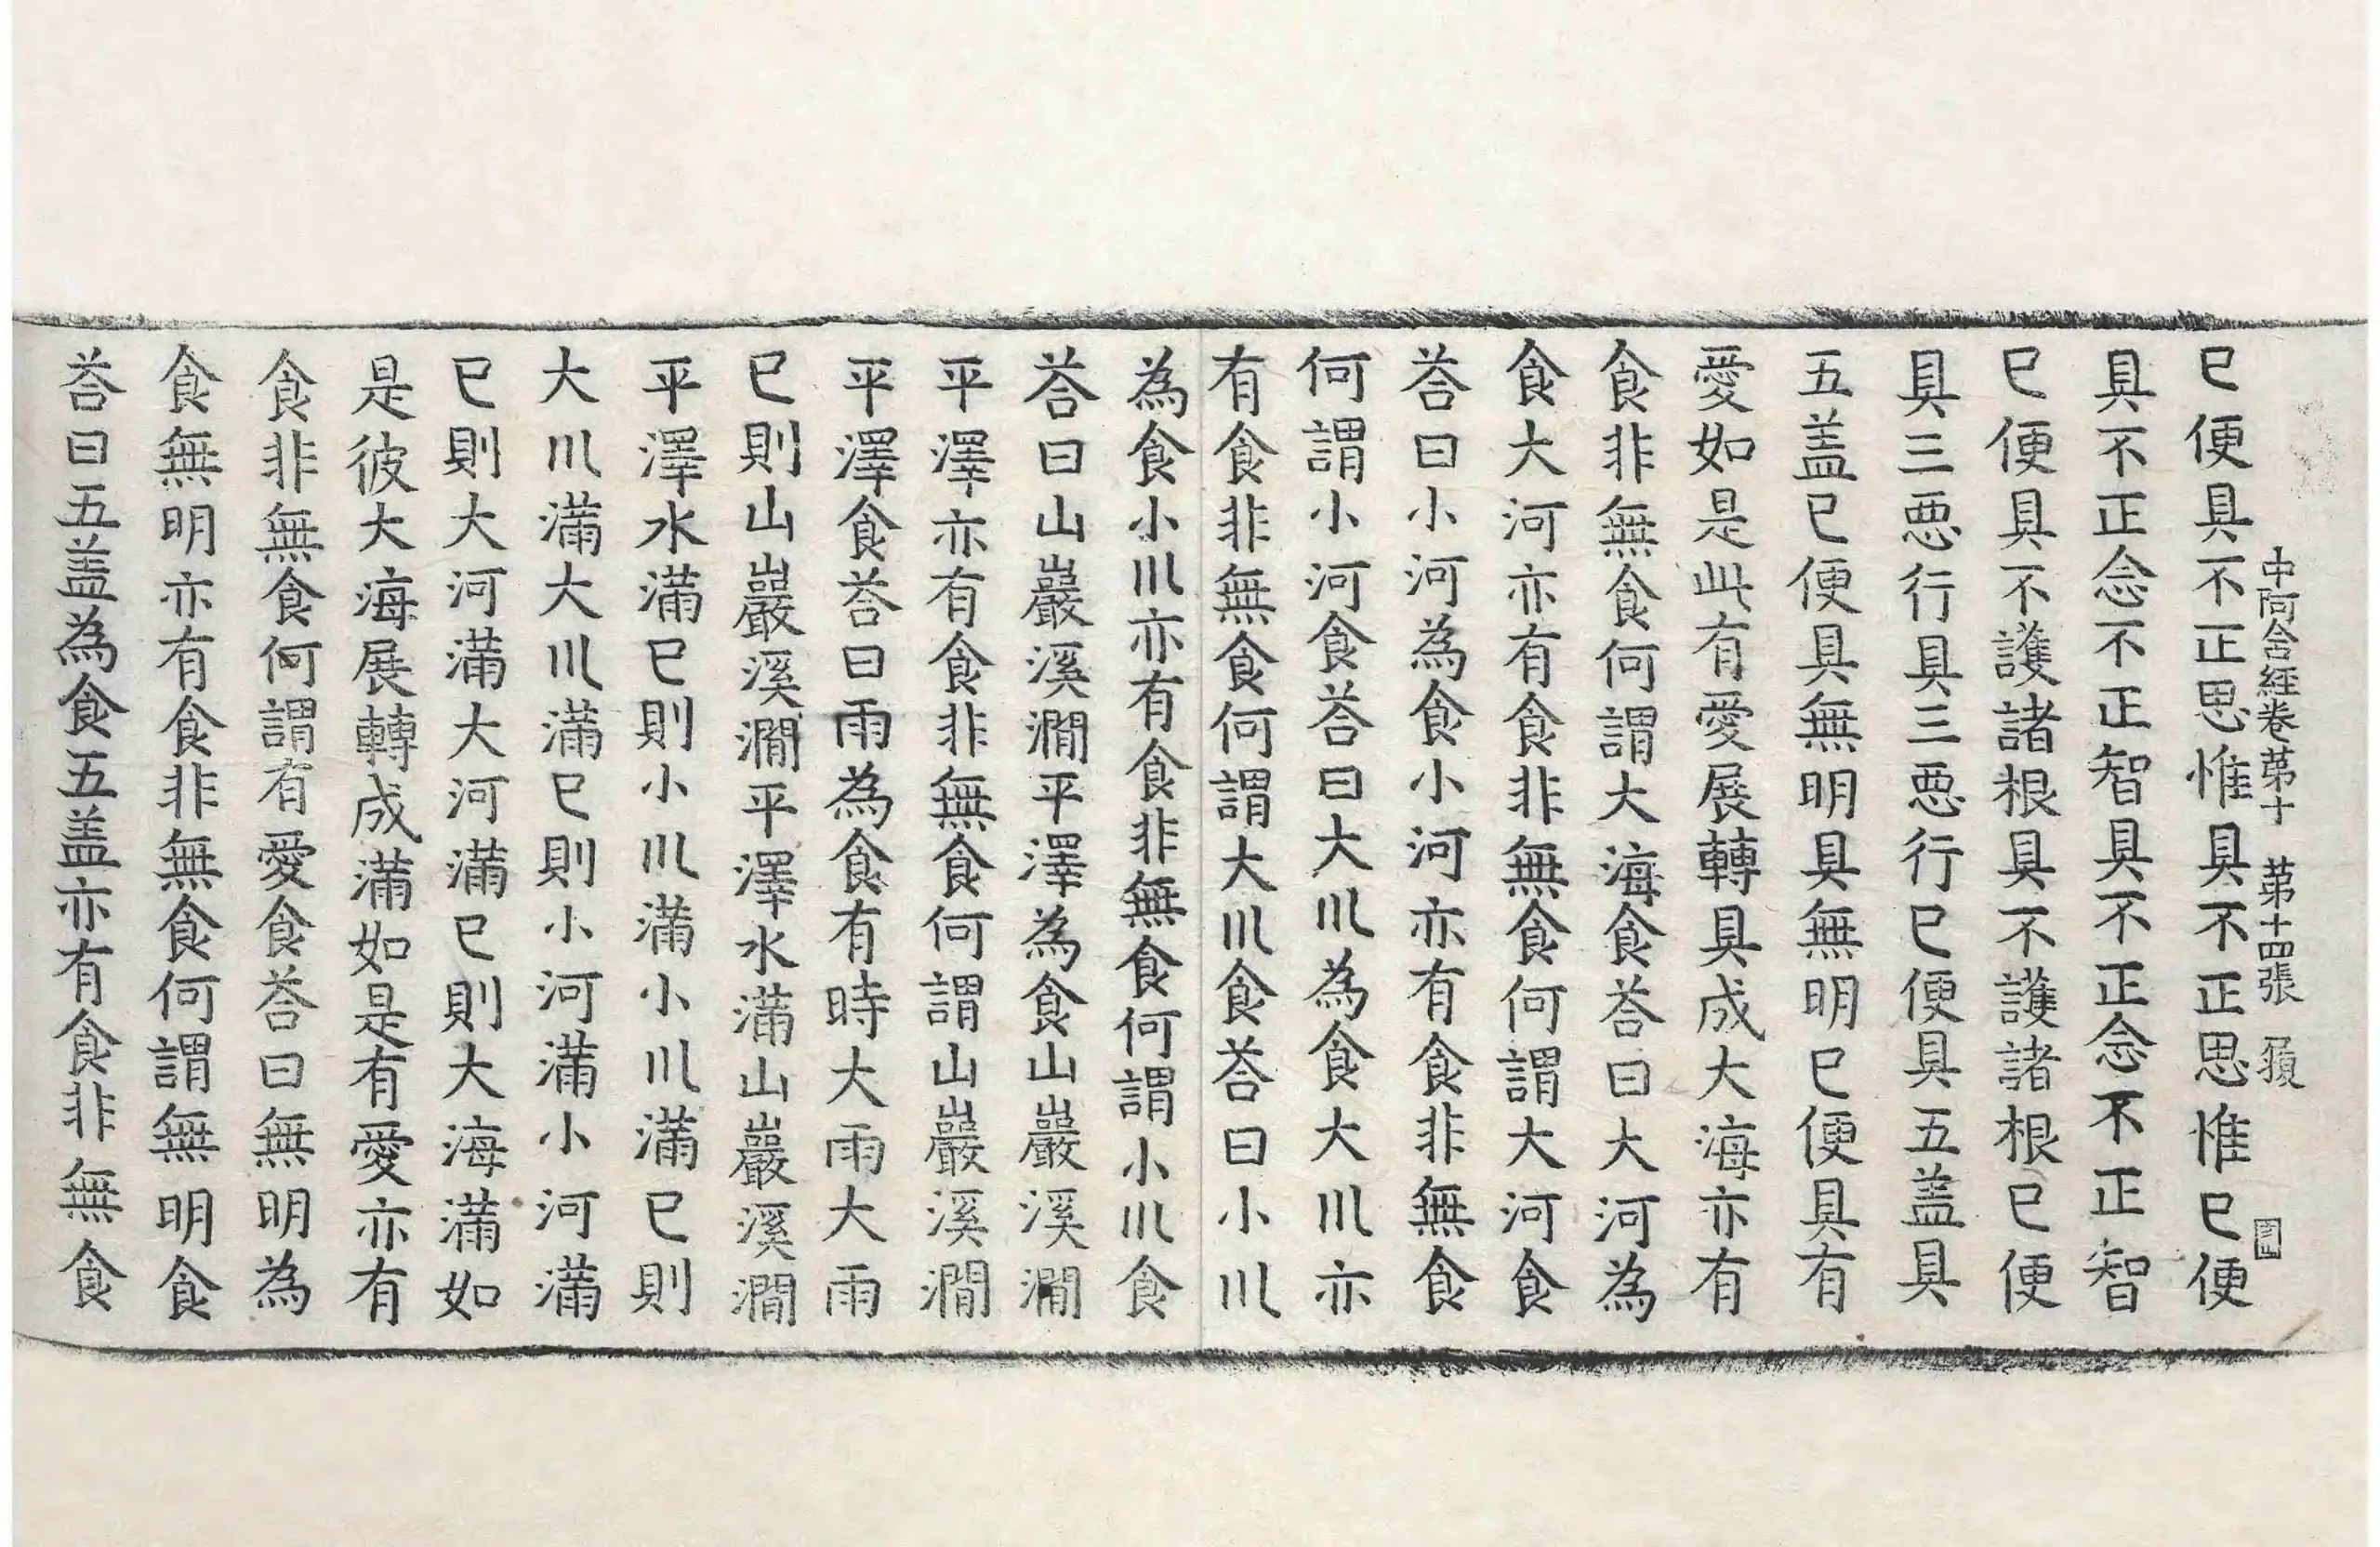 中阿含經卷第十　第十四張　㺅
已便具不正思惟具不正思惟已便
具不正念不正智具不正念不正智
已便具不護諸根具不護諸根已便
具三惡行具三惡行已便具五盖具
五盖已便具無明具無明已便具有
愛如是此有愛展轉具成大海亦有
食非無食何謂大海食荅曰大河為
食大河亦有食非無食何謂大河食
荅曰小河為食小河亦有食非無食
何謂小河食荅曰大川為食大川亦
有食非無食何謂大川食荅曰小川
為食小川亦有食非無食何謂小川食
荅曰山巖溪澗平澤為食山巖溪澗
平澤亦有食非無食何謂山巖溪澗
平澤食荅曰雨為食有時大雨大雨
已則山巖溪澗平澤水滿山巖溪澗
平澤水滿已則小川滿小川滿已則
大川滿大川滿已則小河滿小河滿
已則大河滿大河滿已則大海滿如
是彼大海展轉成滿如是有愛亦有
食非無食何謂有愛食荅曰無明為
食無明亦有食非無食何謂無明食
荅曰五盖為食五盖亦有食非無食